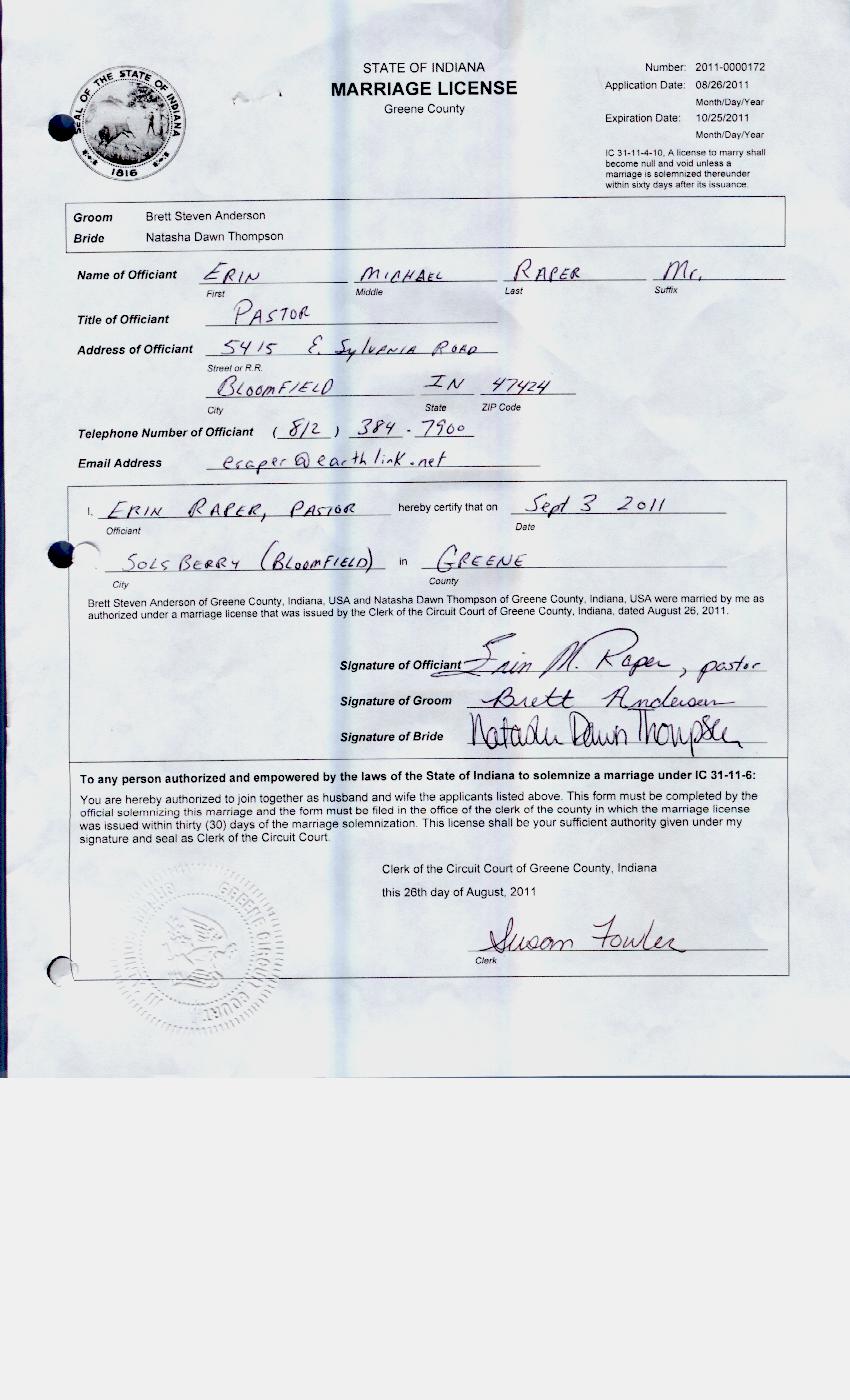 SEAL OF THE STATE OF INDIANA
1816
STATE OF INDIANA
MARRIAGE LICENSE
Greene County
Number: 2011-0000172
Application Date: 08/26/2011
Month/Day/Year
Expiration Date: 10/25/2011
Month/Day/Year
IC 31-11-4-10, A license to marry shall
become null and void unless a
marriage is solemnized thereunder
within sixty days after its issuance.
Groom Brett Steven Anderson
Bride Natasha Dawn Thompson
Name of Officiant ERIN MICHAEL RAPER Mr.
First Middle Last Suffix
Title of Officiant PASTOR
Address of Officiant 5415 E. Sylvania Road
Street or R.R.
BLOOMFIELD IN 47424
City State ZIP Code
Telephone Number of Officiant (812) 384-7900
Email Address eraper@earthlink.net
I, ERIN RAPER, PASTOR hereby certify that on Sept 3 2011
Officiant Date
SOLSBERRY (BLOOMFIELD) in GREENE
City County
Brett Steven Anderson of Greene County, Indiana, USA and Natasha Dawn Thompson of Greene County, Indiana, USA were married by me as
authorized under a marriage license that was issued by the Clerk of the Circuit Court of Greene County, Indiana, dated August 26, 2011.
Signature of Officiant Erin M. Raper, pastor
Signature of Groom Brett Anderson
Signature of Bride Natasha Dawn Thompson
To any person authorized and empowered by the laws of the State of Indiana to solemnize a marriage under IC 31-11-6:
You are hereby authorized to join together as husband and wife the applicants listed above. This form must be completed by the
official solemnizing this marriage and the form must be filed in the office of the clerk of the county in which the marriage license
was issued within thirty (30) days of the marriage solemnization. This license shall be your sufficient authority given under my
signature and seal as Clerk of the Circuit Court.
Clerk of the Circuit Court of Greene County, Indiana
this 26th day of August, 2011
Susan Fowler
Clerk
GREENE CIRCUIT COURT